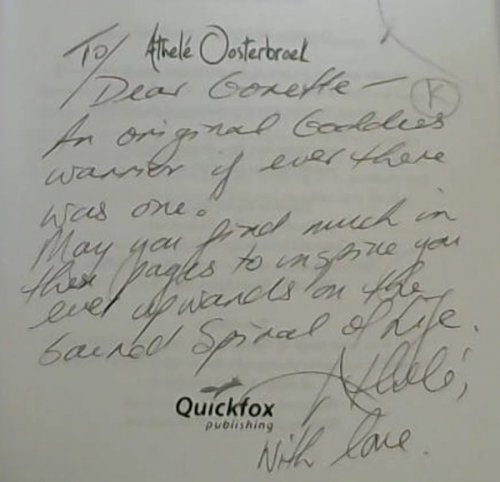 To/ Athelé Oosterbroek
Dear Gonette —
An original Goddess
warrior if ever there
was one.
May you find much in
these pages to inspire you
ever upwards on the
Sacred Spiral of Life.
Athelé,
Quickfox
publishing
With love.
K